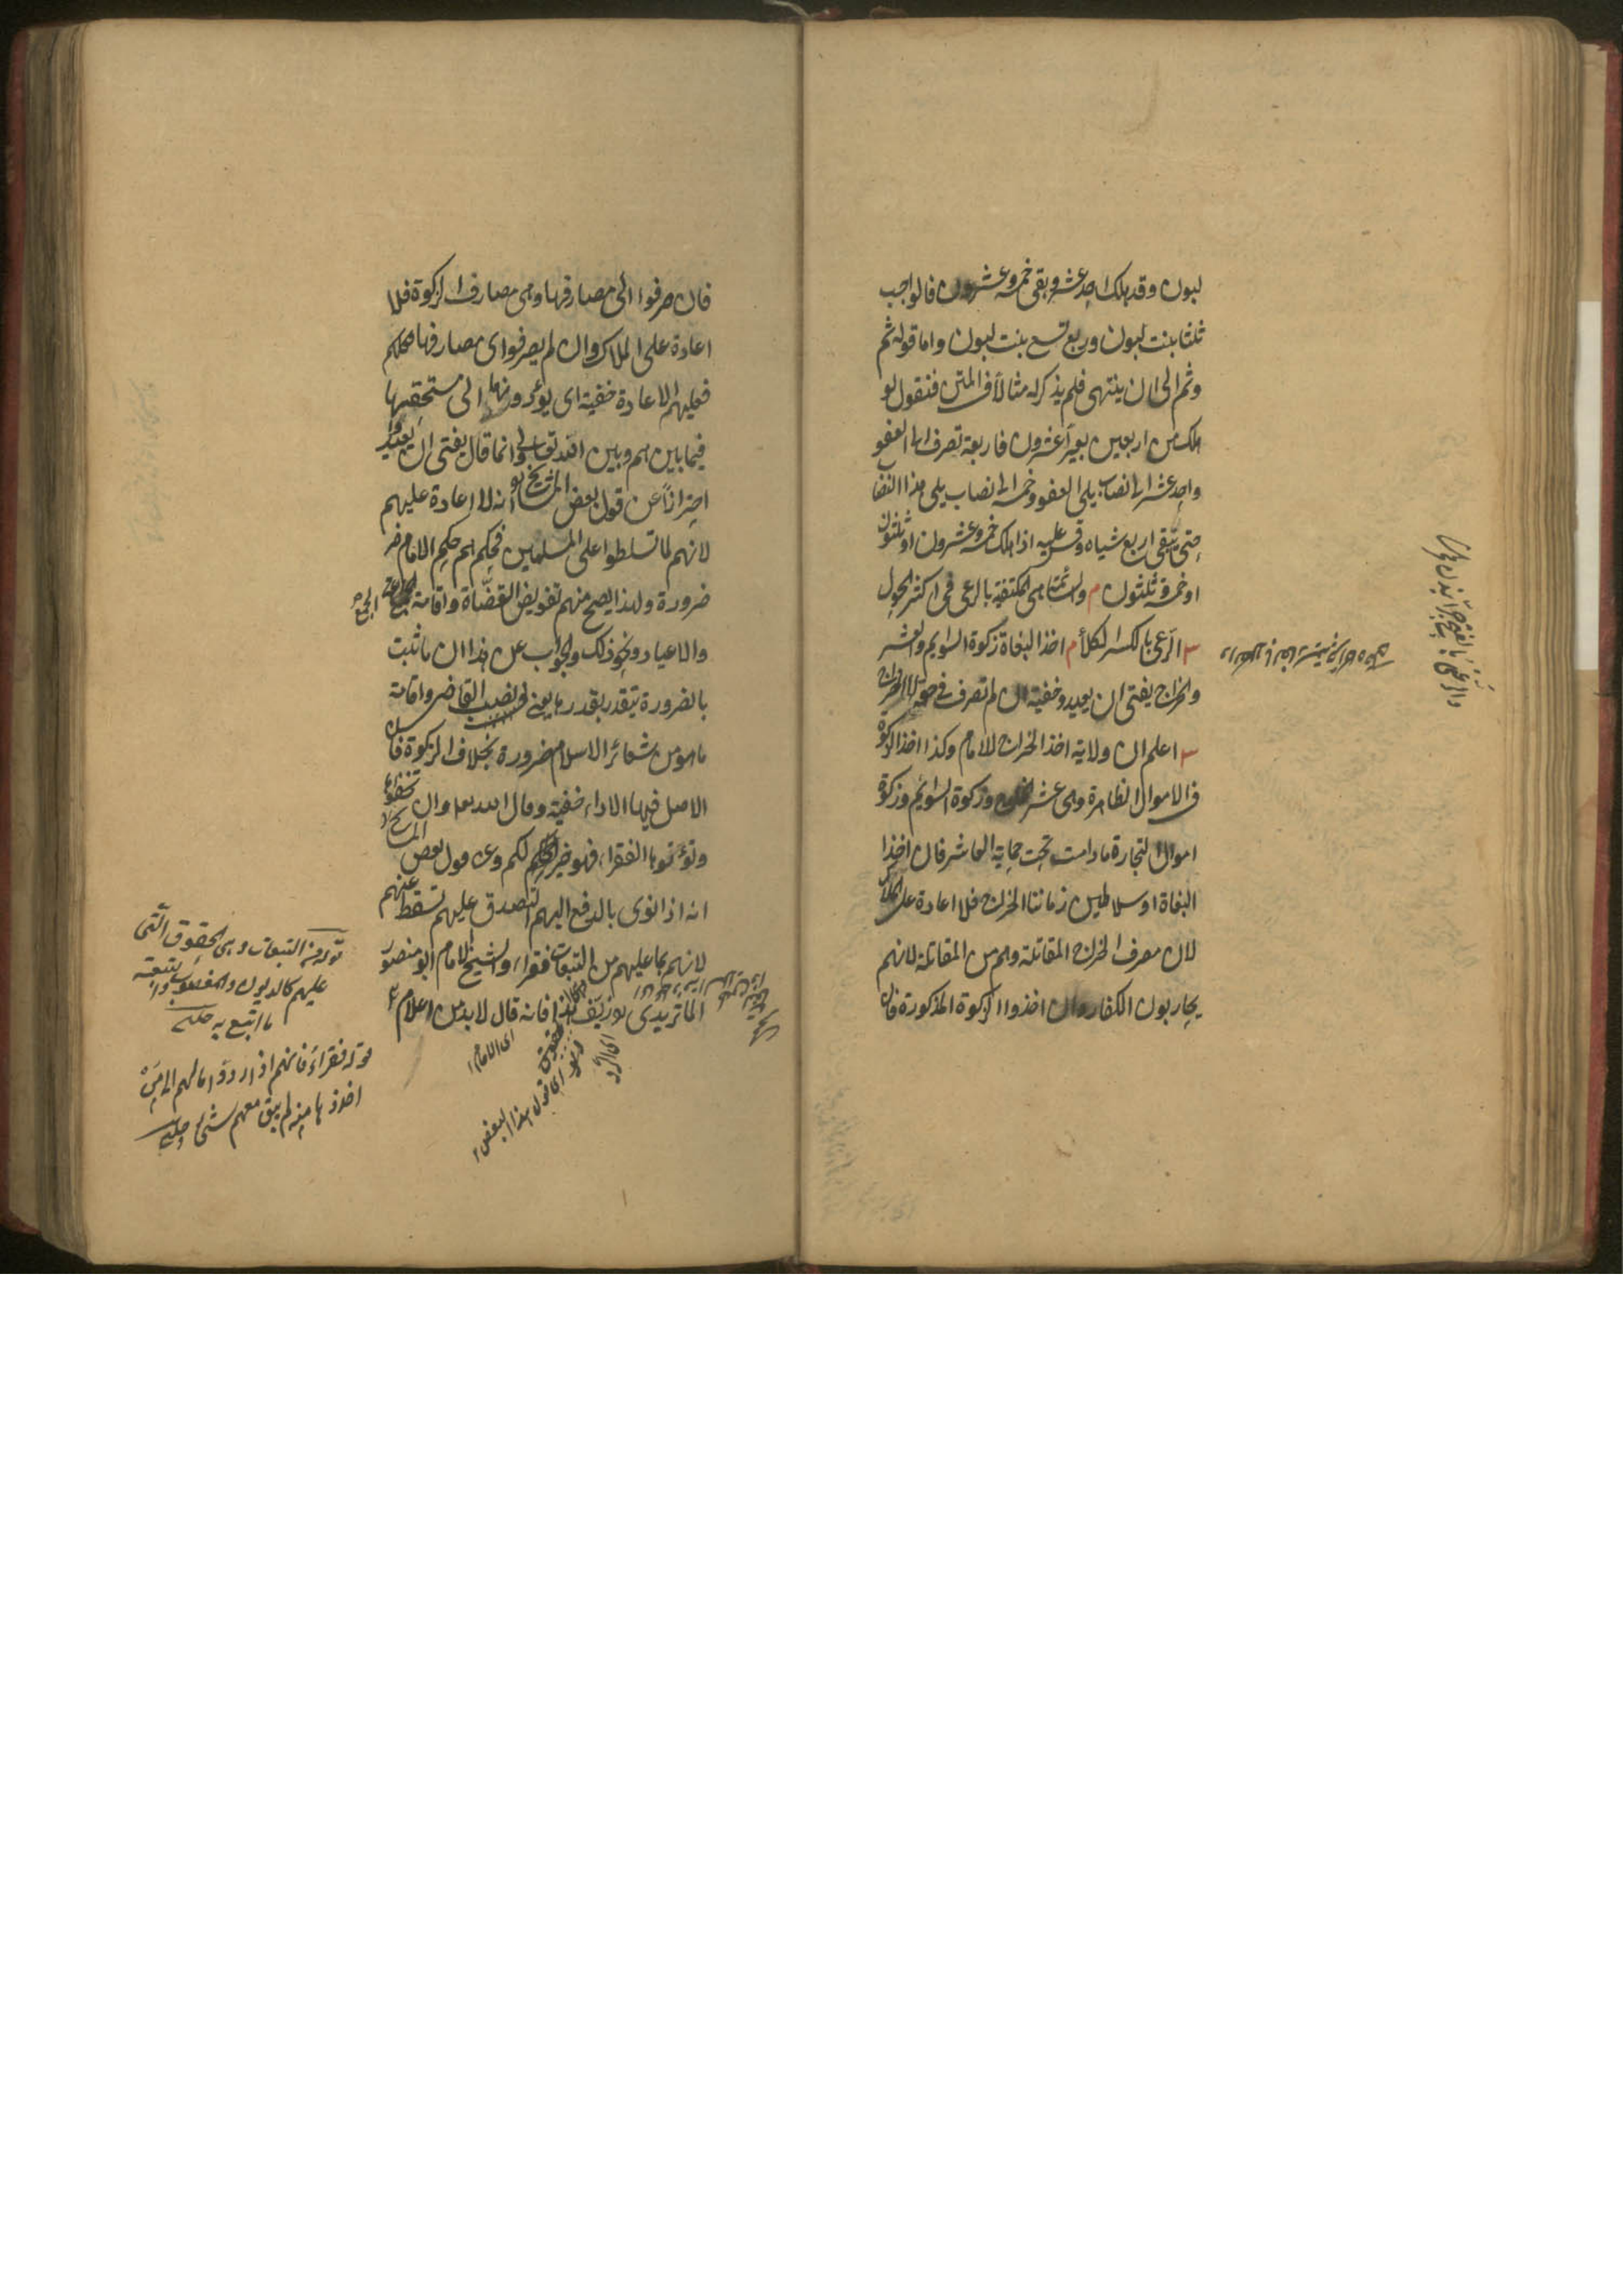 لبون وقد هلك احد عشر وبقى خمسه وعشرون فالواجب
ثلثا بنت لبون وربع تسع بنت لبون واما قوله ثم
وثم الى ان ينتهى فلم يذكر له مثالا فى المتن فنقول لو
هلك من اربعين بعيرا عشرون فاربعة تصرف الى العفو
واحد عشر الى نصاب يلى العفو وخمسه الى نصاب يلى هذا النصا
حتى يبقى اربع شياه وقس عليه اذا هلك خمسه وعشرون او ثلثون
او خمسة وثلثون م والسائمة هى المكتفية بالرعى فى اكثر الحول
س الرعى بالكسر الكلأ م اخذ البغاة زكوة السوايم والعشر
والخراج يفتى ان يعيدوا خفية ان لم تصرف فى حقه لا الخراج
س اعلم ان ولاية اخذ الخراج للامام وكذا اخذ الزكوة
فى الاموال الظاهرة وهى عشر الخارج وزكوة السوائم وزكوة
اموال التجارة مادامت تحت حماية العاشر فان اخذ
البغاة او سلاطين زماننا الخراج فلا اعادة على الملاك
لان مصرف الخراج المقاتلة وهم من المقاتلة لانهم
يحاربون الكفار وان اخذوا الزكوة المذكورة فان
فان صرفوا الى مصارفها وهى مصارف الزكوة فلا
اعادة على الملاك وان لم يصرفوا الى مصارفها
فعليهم الاعادة خفية اى يؤدونها الى مستحقيها
فيما بينهم وبين الله تعالى وانما قال يفتى ان يعيدوا
احترازا عن قول بعض المشايخ انه لا اعادة عليهم
لانهم لما تسلطوا على المسلمين فحكمهم حكم الامام
ضرورة ولهذا يصح منهم تفويض القضاة واقامة الجمع
والاعياد ونحو ذلك والجواب عن هذا ان ما ثبت
بالضرورة يتقدر بقدرها يعنى نصب القاضى واقامة
ما هو من شعائر الاسلام ضرورة بخلاف الزكوة فان
الاصل فيها الاداء خفية وقال الله تعا وان تخفوها
وتؤتوها الفقراء فهو خير لكم وعن قول بعض المشايخ
انه اذا نوى بالدفع اليهم التصدق عليهم تسقط عنهم
لانهم بما عليهم من التبعات فقراء والشيخ الامام ابو منصور
الماتريدى زيف هذا فانه قال لابد من اعلام
قوله من التبعات وهى الحقوق التى
عليهم كالديون والغصوب والتبعة
ما اتبع به
قوله فقراء فانهم اذا ردوا اموالهم الى من
اخذوها منه لم يبق معهم شئ
اى الامام
اى قول هذا البعض